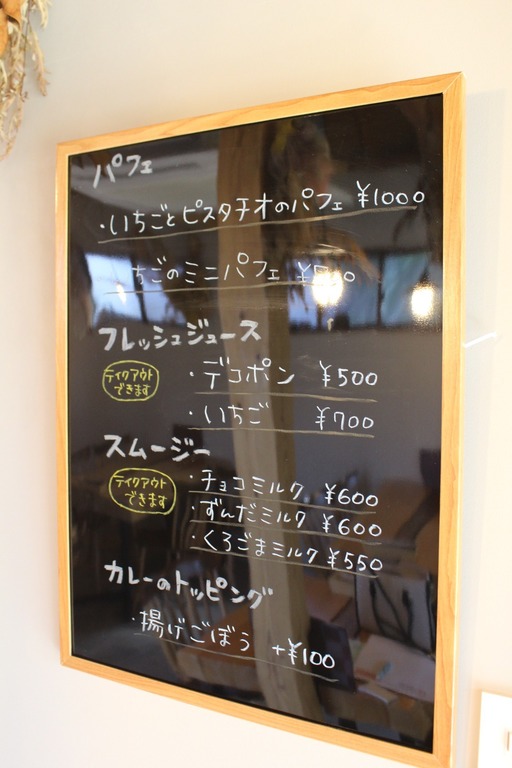 パフェ
・いちごとピスタチオのパフェ ¥1000
ちごのミニパフェ
フレッシュジュース
テイクアウト
できます
・デコポン ¥500
・いちご ¥700
スムージー
テイクアウト
できます
・チョコミルク ¥600
・ずんだミルク ¥600
・くろごまミルク ¥550
カレーのトッピング
・揚げごぼう +¥100